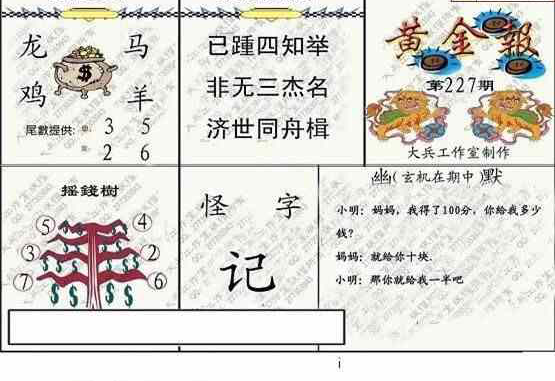 龙 马
鸡 羊
尾數提供: 3 5
2 6
已踵四知举
非无三杰名
济世同舟楫
黄金報
第227期
大兵工作室制作
摇錢樹
5 4
3 2
7 6
怪字
记
幽(玄机在期中 默
小明：妈妈，我得了100分，你给我多少
钱？
妈妈：就给你十块.
小明：那你就给我一半吧
i